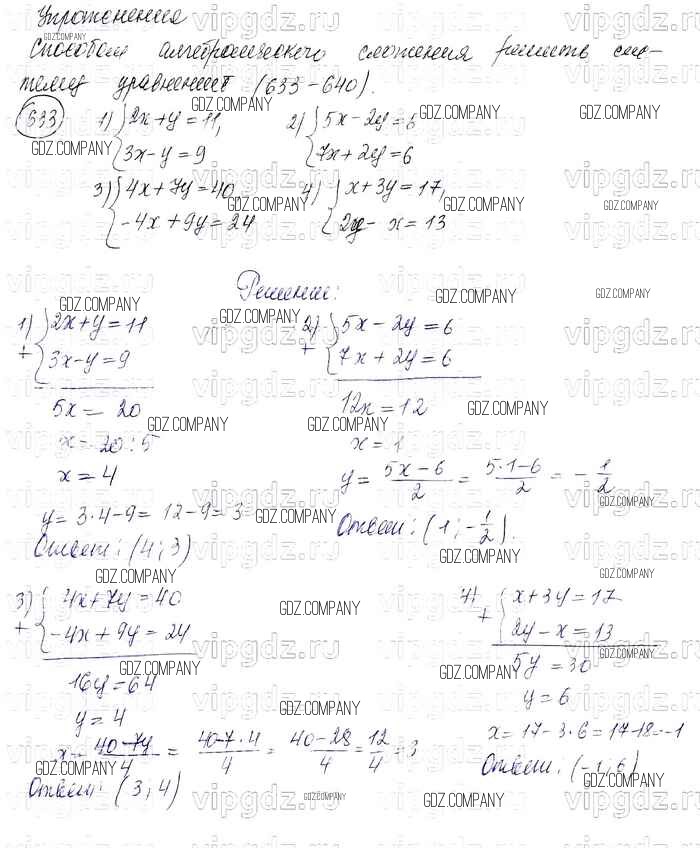 Упражнения
Способом алгебраического сложения решить сис-
тему уравнений (633-640).
633 1) { 2x+y=11, 3x-y=9 2) { 5x-2y=6 7x+2y=6
3) { 4x+7y=40 -4x+9y=24 4) { x+3y=17, 2y-x=13
Решение:
1) + { 2x+y=11 3x-y=9
5x=20
x=20:5
x=4
y=3·4-9=12-9=3
Ответ: (4;3)
2) + { 5x-2y=6 7x+2y=6
12x=12
x=1
y=(5x-6)/2=(5·1-6)/2=-1/2
Ответ: (1;-1/2).
3) + { 4x+7y=40 -4x+9y=24
16y=64
y=4
x=(40-7y)/4=(40-7·4)/4=(40-28)/4=12/4=3
Ответ: (3;4)
4) + { x+3y=17 2y-x=13
5y=30
y=6
x=17-3·6=17-18=-1
Ответ: (-1;6)
GDZ.COMPANY
vipgdz.ru